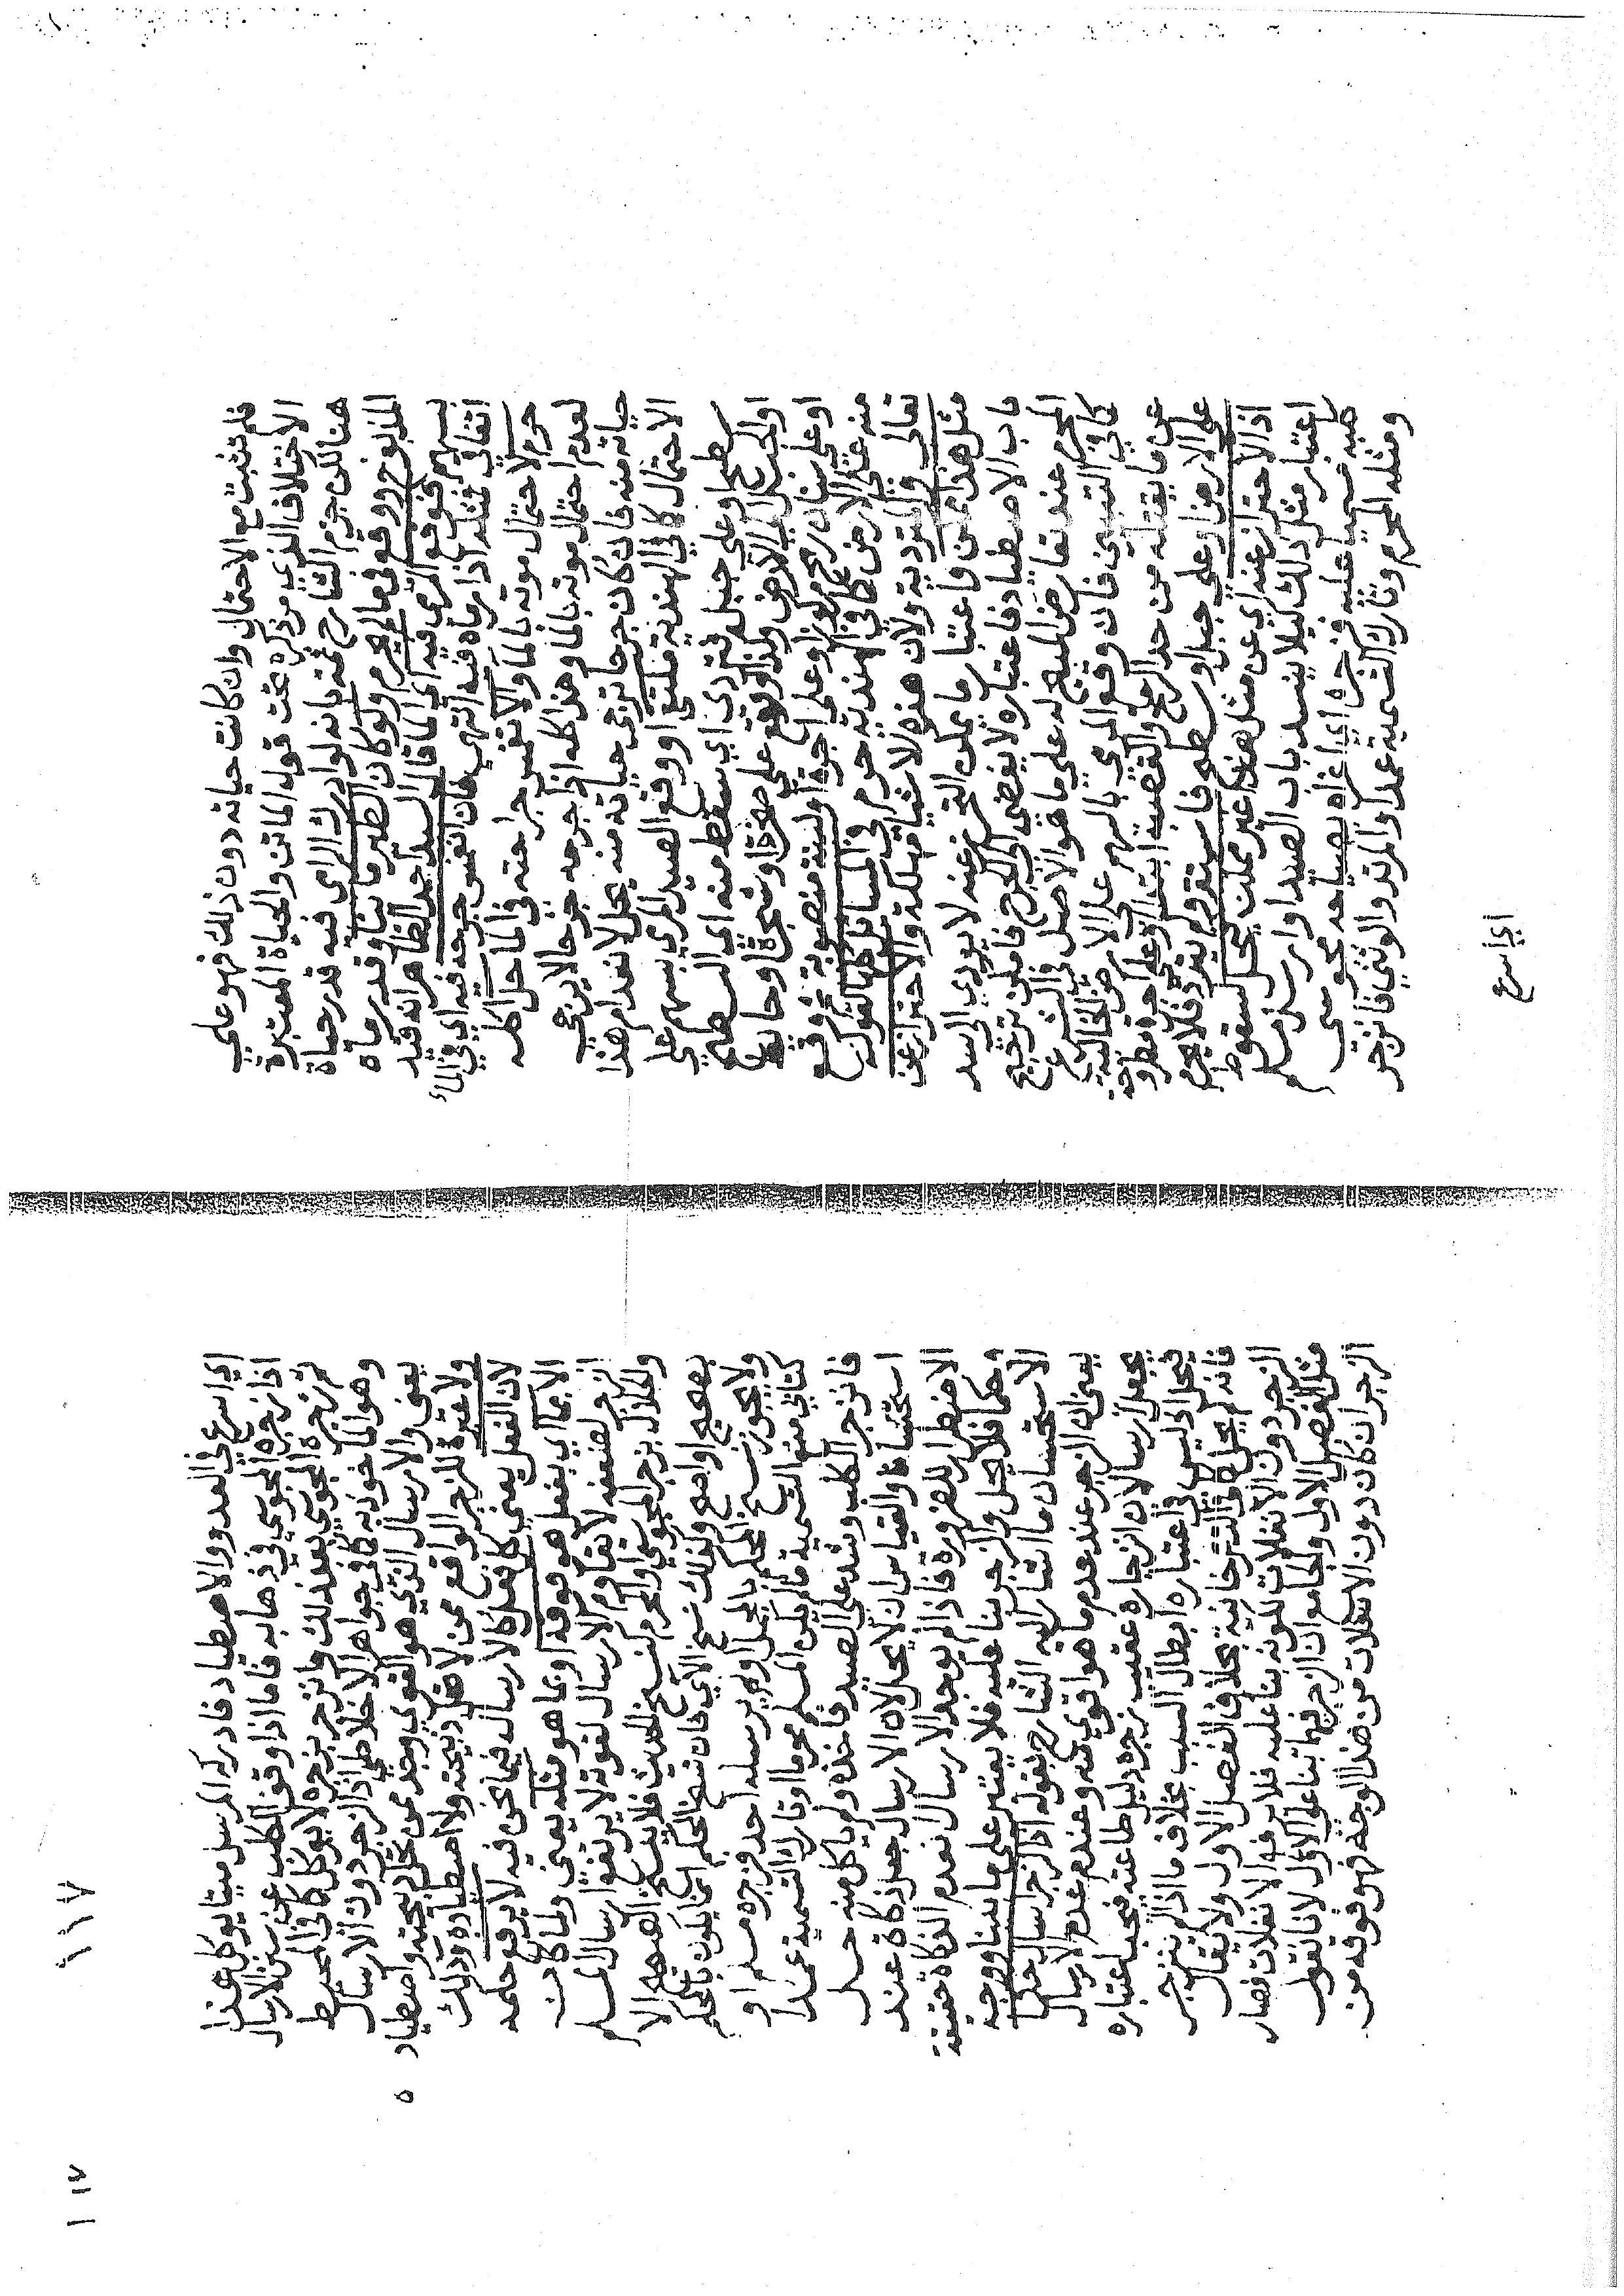 فلم تثبت مع الاحتمال وان كانت حياته دون ذلك فهو علي
الاختلاف الذي مر ذكره تحت قوله الماتن والحياة المعتبرة
هنا لكن جزم الشارح ثمة بانه لو ادرك الرامي فيه قدر حياة
المذبوح ووقع في ما لم يحرم ولو كان الطير مائيا وقد رماه
بسهم فوقع المرمي فيه اي الما قال السيد احمد الظاهر انه قيد
اتفاقي فمثله اذا رماه فيه انتهي فان انغمس جرحه فيه اي في الماء
حرم لاحتمال موته بالما والا تغمس جراحته في الما حل اكله
لعدم احتمال موته بالما وهذا كله اذا جرحه جرحا لا يرجي
حياته منه فان كان جرحا ترجي حياته منه يحل لانعدام هذا
الاحتمال كما في الهندية ملتقي او وقع الصيد المرمي بسهم علي
سطح او علي جبل فتردي اي سقط منه اي السطح
او الجبل الي الارض وكذا لو وقع علي صخرة او شجرة او حايط
او علي سنان رمح مركوز او علي اجرة او لبنة منصوبة ثم وقع
منه علي الارض كما في الهندية حرم في المسائل كلها لقوله
تعالي والمتردية ولان هذه الاشيا مهلكة والاحتراز عن
مثل هذا ممكن واعتبار ما يمكن التحرز عنه لا يودي الي سد
باب الاصطياد فاعتباره لا يفضي الي الحرج فامكن ترجيح
المحرم عند تعارض المبيح له علي ما هو الاصل في الشرع
كما في التبيين فان وقع المرمي بالسهم علي الارض الخالية
عن ما يقتله من حد الرمح والقصبة ابتداء او علي اجرة مطروحة
علي الارض او علي جبل او سطح فاستقر ولم يترد فلا يحرم
اذ الاحتراز عنه اي عن مثل هذا غير ممكن يحل لسقوط
اعتبار مثل ذلك كيلا ينسد باب الصيد او ارسل مسلم
كلبه مسميا عليه فزجره اي اغراه بصياحه مجوسي
ومثله المحرم وتارك التسمية عمدا والمرتد والوثني فانزجر
اي أسرع
١١٧
١١٧
اي اسرع في العدو والاصطياد فادركه المرسل ميتا يوكل هذا
اذا زجره المجوسي في ذهابه فاما اذا وقف الكلب عن سنن الارسال
ثم زجره المجوسي بعد ذلك وانزجر بزجره لا يوكل كما في المحيط
وهو الماخوذ به كما في جواهر الاخلاطي اذ الزجر دون الارسال
يعني والارسال الذي هو القوي وجد ممن تحل ذبيحته واصطياد
ولا عبرة للزجر الواقع ممن لا تحل ذبيحته ولا اصطياده وذلك
لان الفعل يعني كل فعل كالارسال فيما نحن فيه لا يرفع حكمه
الا بما اي بفعل هو فوقه او بما هو مثله يعني ولما كان
الزجر لضعفه لا يقاوم الارسال لقوته لا يرتفع ارسال المسلم
والحلال بزجر المجوسي والمحرم كنسخ الحديث فلا ينسخ الصحيح الا
بصحيح او اصح وكذلك نسخ الآي فان نسخ المحكم انما يكون بالمحكم
ولا يجوز نسخ المحكم بالمجمل او لم يرسله احد فزجره مسلم او
كتابي منه التسمية ما لم يكن المسلم محرما او تارك التسمية عمدا
فانزجر الكلب وشد علي الصيد فاخذه ولم ياكل منه حل
استحسانا والقياس ان لا يحل لان الارسال جعل ذكاة عند
الاضطرار للضرورة فاذا لم يوجد الارسال انعدم الذكاة حقيقة
وحكما فلا يحل والزجر بنا عليه فلا يعتبر علي ما بينا ووجه
الاستحسان ما اشار اليه الشارح بقوله اذ الزجر ارسال حكما
يعني ان الزجر عند عدم ما هو اقوي منه وعند عدم الارسال
يجعل ارسالا لان انزجاره عقيب زجره دليل طاعته فيجب اعتباره
فيحل اذ ليس في اعتباره ابطال السبب بخلاف ما اذا لم ينزجر
فانه لم يحل كما في التترخانية بخلاف الفصل الاول ولا يقال
الزجر دون الانفلات لكونه بنا عليه فلا يرفع الانفلات فصار
مثل الفصل الاول والجامع ان الزجر فيهما بناء علي الاول لانا نقول
الزجر ان كان دون الانفلات من هذا الوجه فهو فوقه من